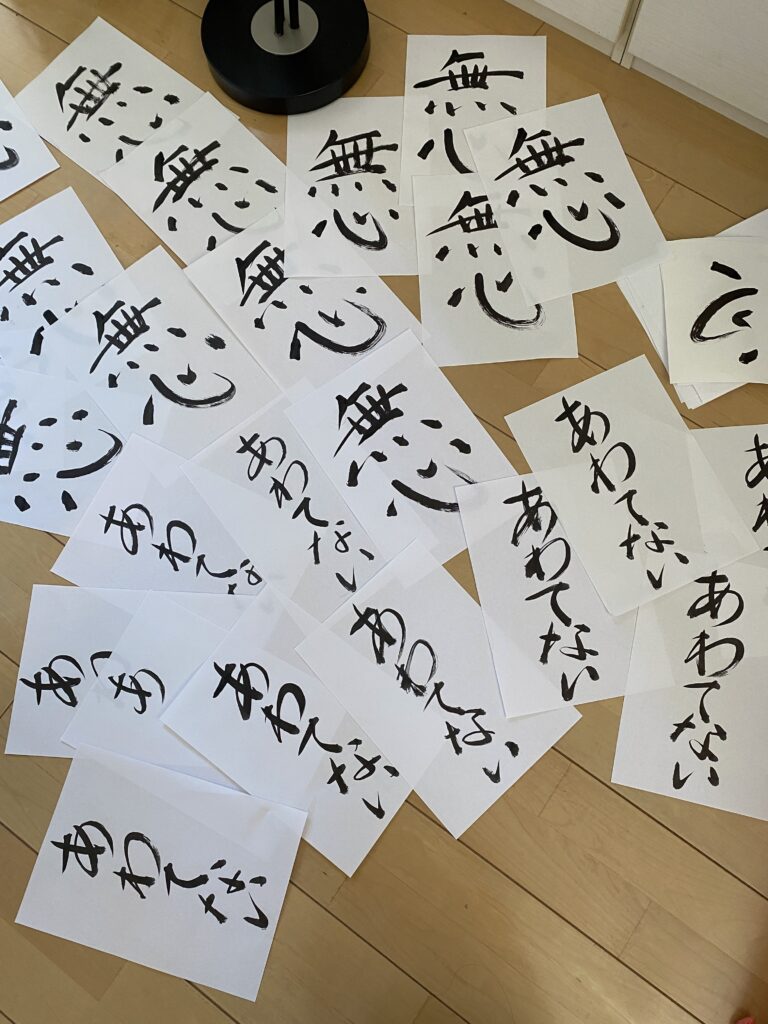 無
無心
無心
無
無心
無心
無心
無
心
無心
無心
無心
あわてない
あわてな
あわてない
あわてない
あわ
あわてない
あわてない
あわてない
あ
あ
あわてない